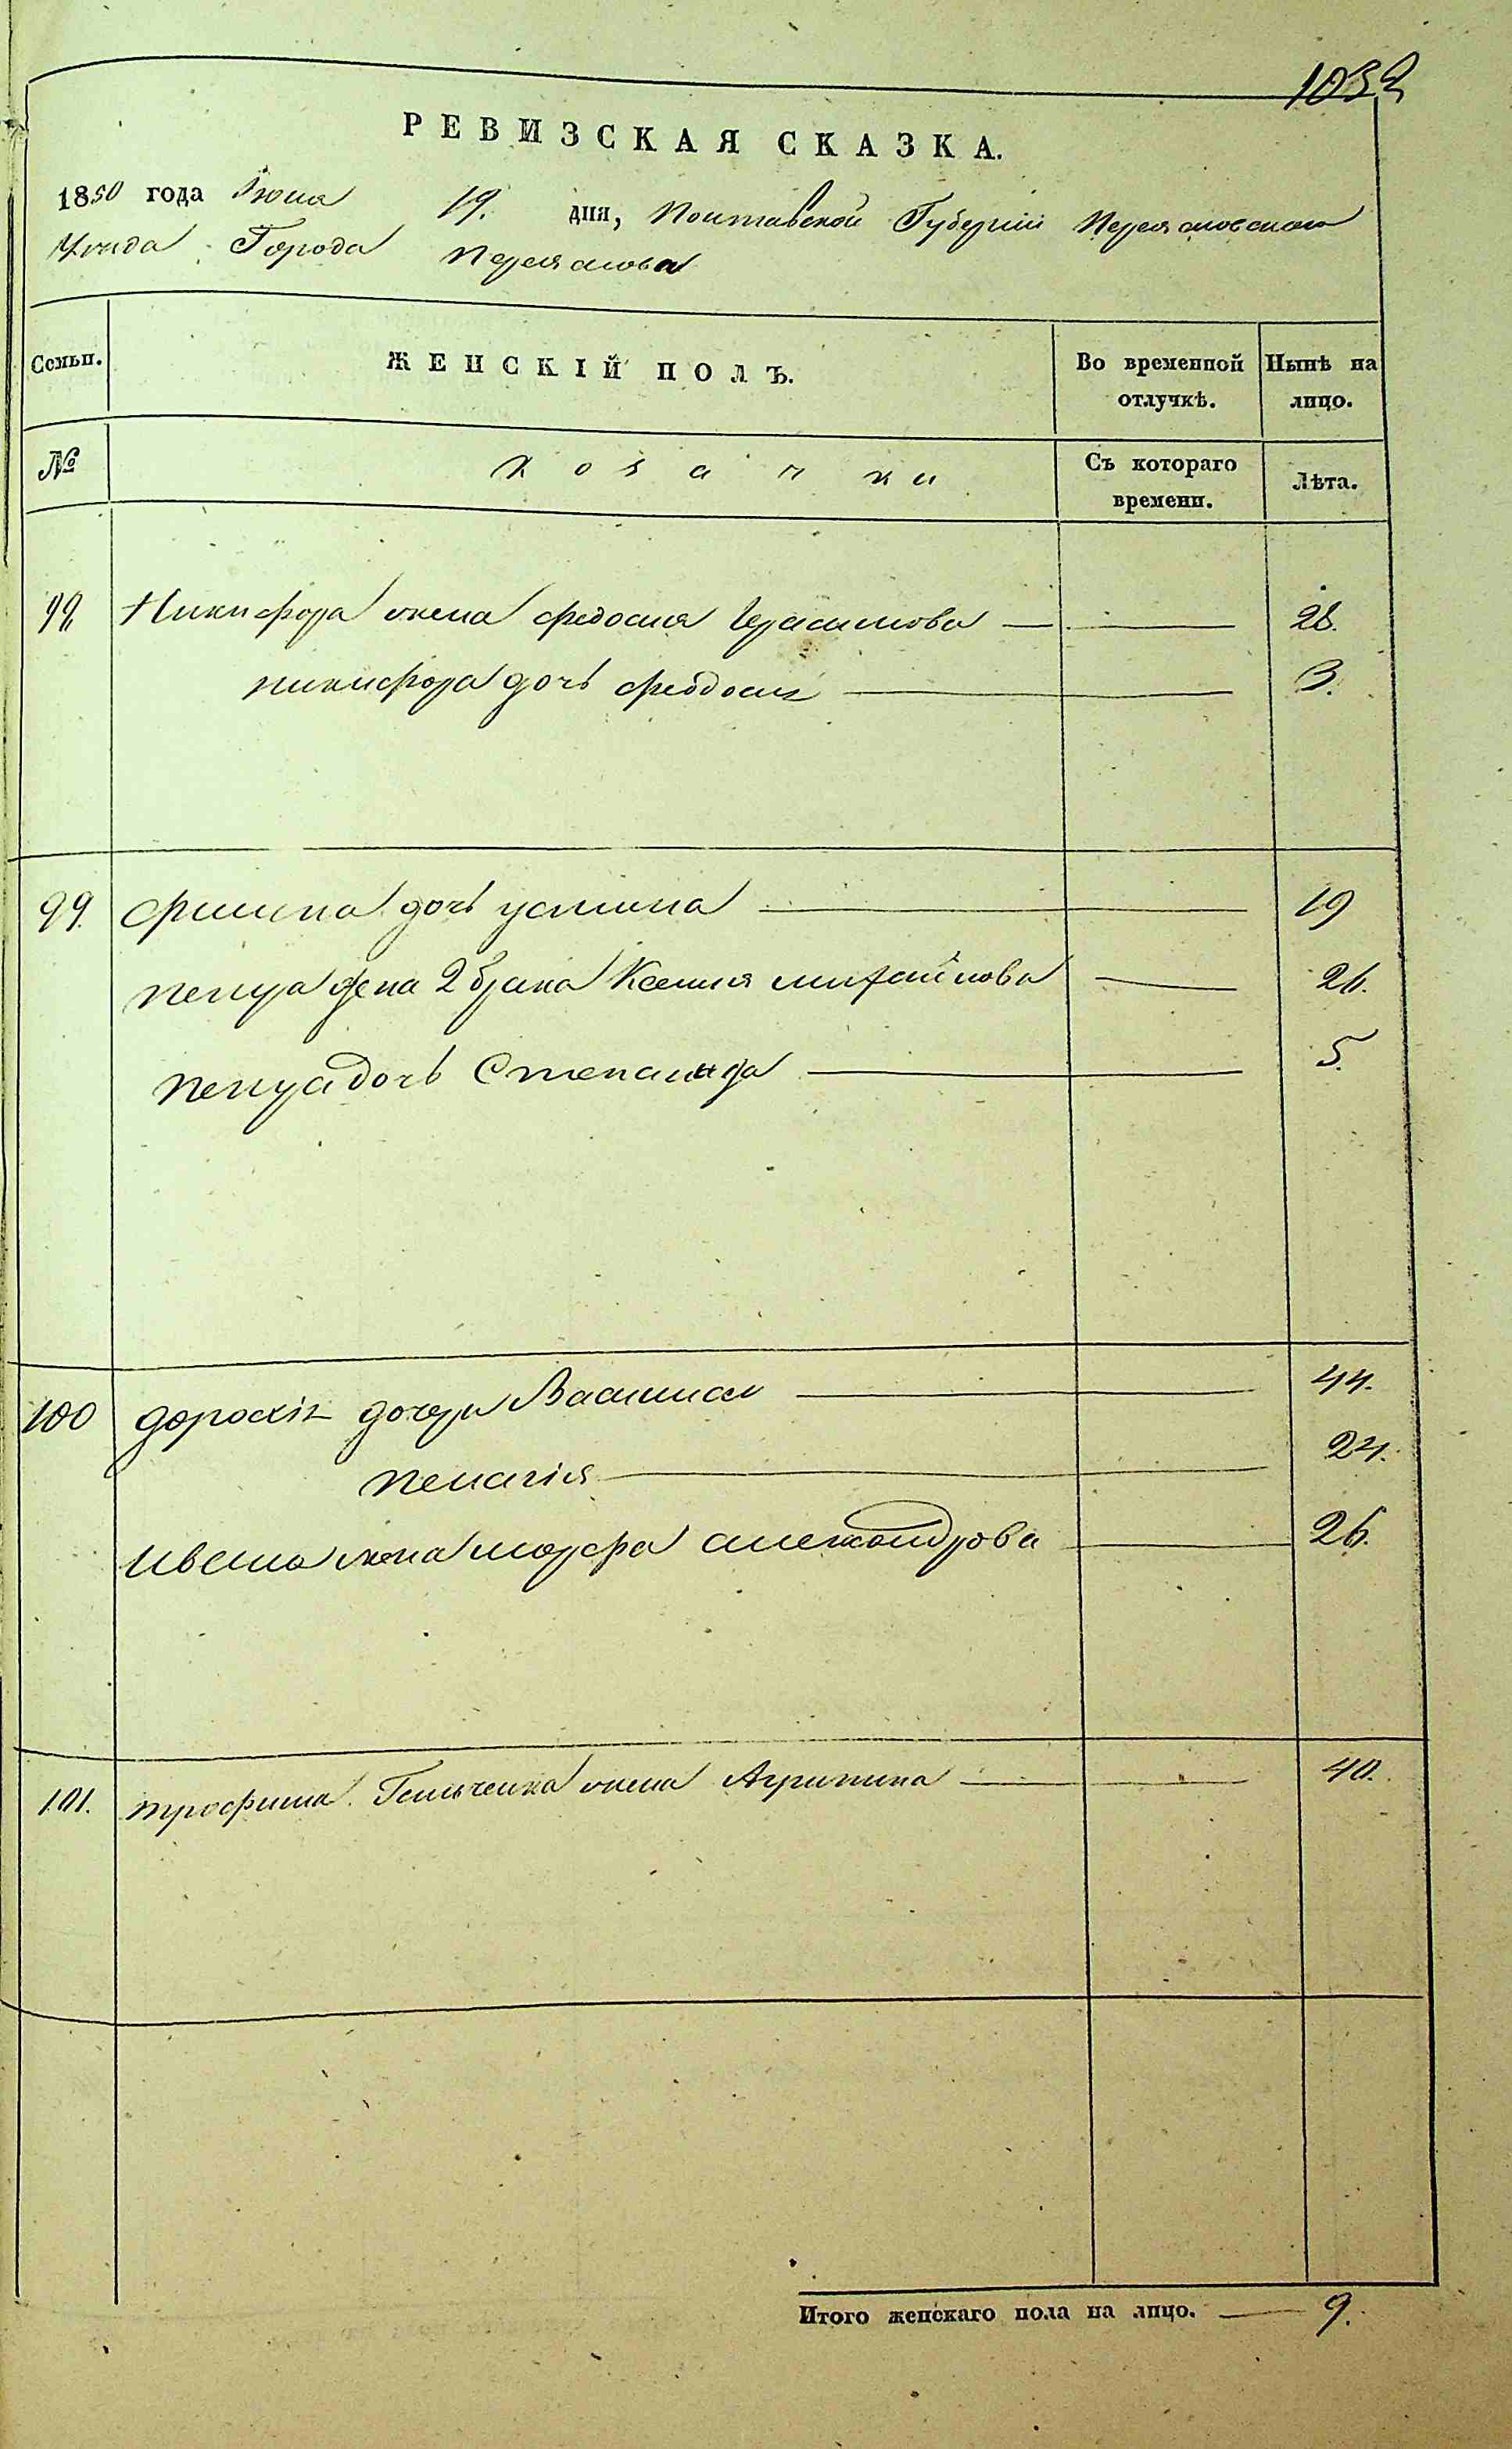 1032
РЕВИЗСКАЯ СКАЗКА.
1850 года Іюня 19. дня, Полтавской Губерніи Переяславскаго
Уезда Города Переяслова
Семьи. ЖЕНСКІЙ ПОЛЪ. Во временной отлучкѣ. Нынѣ на лицо.
№ Козачки Съ котораго времени. Лѣта.
Никифора жена Федосия Герасимова 28.
никифора дочь феодосия 3.
99. дочь устина 19
петра жена 2 брака Ксения михайлова 26.
петра дочь Степанида 5.
100 дорофія дочери Василиса 44.
пелагія 24.
Ивана жена марфа александрова 26.
101. трофима жена Агрипина 40.
Итого женскаго пола на лицо. 9.